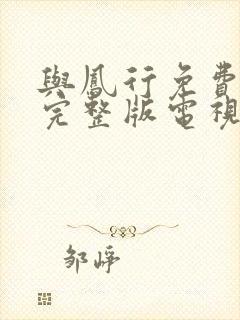 與鳳行免費
完整版電視
邹崢